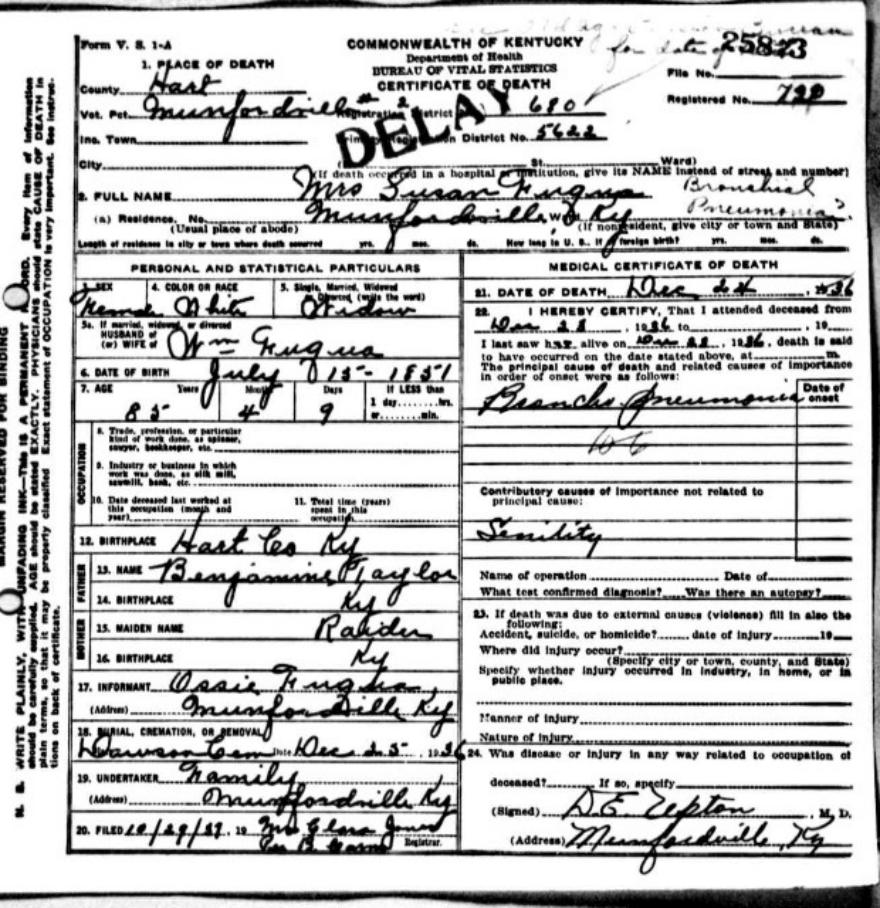 for date of
25873
Form V. S. 1-A
COMMONWEALTH OF KENTUCKY
Department of Health
BUREAU OF VITAL STATISTICS
CERTIFICATE OF DEATH
File No.
Registered No.
1. PLACE OF DEATH
County Hart
Vot. Pct. Munfordville # 2 Registration District 690
DELAY
Inc. Town Registration District No. 5622
City St. Ward)
(If death occurred in a hospital or institution, give its NAME instead of street and number)
2. FULL NAME Mrs Susan Fuqua Bronchial Pneumonia?
(a) Residence. No. Munfordville, Ky
(Usual place of abode) (If nonresident, give city or town and State)
Length of residence in city or town where death occurred yrs. mos. ds. How long in U. S., if foreign birth? yrs. mos. ds.
PERSONAL AND STATISTICAL PARTICULARS
3. SEX Female
4. COLOR OR RACE White
5. Single, Married, Widowed or Divorced (write the word) Widow
5a. If married, widowed, or divorced
HUSBAND of
(or) WIFE of Wm Fuqua
6. DATE OF BIRTH July 15 - 1851
7. AGE Years Months Days If LESS than
1 day hrs.
or min.
85 4 9
OCCUPATION
8. Trade, profession, or particular
kind of work done, as spinner,
sawyer, bookkeeper, etc.
9. Industry or business in which
work was done, as silk mill,
sawmill, bank, etc.
10. Date deceased last worked at
this occupation (month and
year)
11. Total time (years)
spent in this
occupation
12. BIRTHPLACE Hart Co Ky
FATHER
13. NAME Benjamine Taylor
14. BIRTHPLACE Ky
MOTHER
15. MAIDEN NAME
16. BIRTHPLACE Ky
17. INFORMANT Ossie Fuqua
(Address) Munfordville Ky
18. BURIAL, CREMATION, OR REMOVAL
Dawson Cem Date Dec 25, 1936
19. UNDERTAKER Family
(Address) Munfordville Ky
20. FILED 10/29/37, 19 Mrs Clara Jones
Registrar.
MEDICAL CERTIFICATE OF DEATH
21. DATE OF DEATH Dec 24, 1936
22. I HEREBY CERTIFY, That I attended deceased from
Dec 23, 1936 to , 19
I last saw her alive on Dec 23, 1936, death is said
to have occurred on the date stated above, at m.
The principal cause of death and related causes of importance
in order of onset were as follows:
Date of
onset
Broncho pneumonia
Contributory causes of importance not related to
principal cause:
Senility
Name of operation Date of
What test confirmed diagnosis? Was there an autopsy?
23. If death was due to external causes (violence) fill in also the
following:
Accident, suicide, or homicide? date of injury 19
Where did injury occur?
(Specify city or town, county, and State)
Specify whether injury occurred in industry, in home, or in
public place.
Manner of injury
Nature of injury
24. Was disease or injury in any way related to occupation of
deceased? If so, specify
(Signed) D. E. Upton, M. D.
(Address) Munfordville, Ky
MARGIN RESERVED FOR BINDING
N. B. WRITE PLAINLY, WITH UNFADING INK—This IS A PERMANENT RECORD. Every item of information
should be carefully supplied. AGE should be stated EXACTLY. PHYSICIANS should state CAUSE OF DEATH in
plain terms, so that it may be properly classified. Exact statement of OCCUPATION is very important. See instruc-
tions on back of certificate.